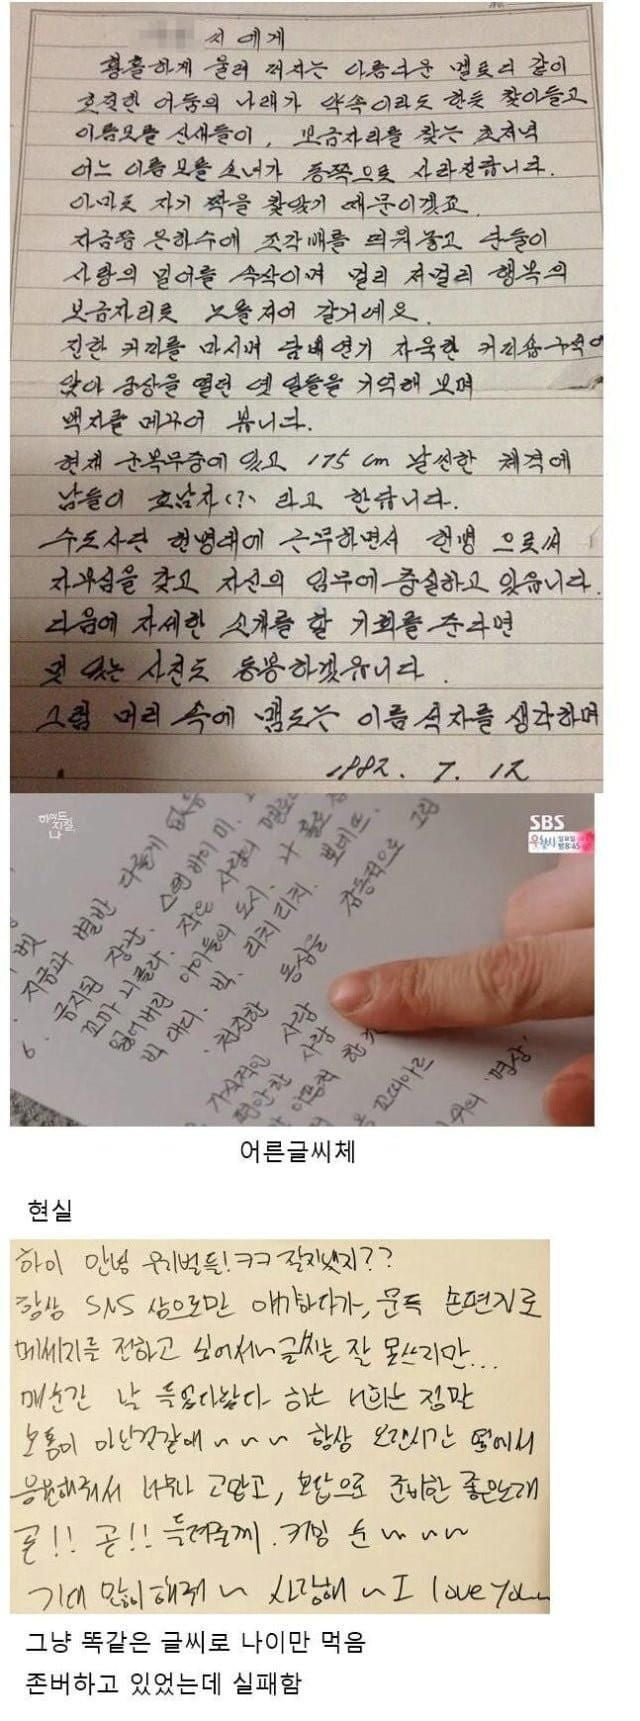 씨 에게
황홀하게 울려 퍼지는 아름다운 멜로디 같이
호젓한 어둠의 나래가 약속이라도 한듯 찾아들고
이름모를 산새들이, 보금자리를 찾는 초저녁
어느 이름 모를 소녀가 동쪽으로 사라진답니다.
아마도 자기 짝을 찾았기 때문이겠죠.
지금쯤 은하수에 조각배를 띄워놓고 단둘이
사랑의 밀어를 속삭이며 멀리 저멀리 행복의
보금자리로 노를저어 갈거예요.
진한 커피를 마시며 담배연기 자욱한 커피숍구석에
앉아 궁상을 떨던 옛 일들을 기억해 보며
백지를 메꾸어 봅니다.
현재 군복무중에 있고 175 cm 날씬한 체격에
남들이 호남자(?) 라고 한답니다.
수도사단 헌병대에 근무하면서 헌병 으로써
자부심을 갖고 자신의 임무에 충실하고 있읍니다.
다음에 자세한 소개를 할 기회를 준다면
멋 있는 사진도 동봉하겠읍니다.
그럼 머리 속에 맴도는 이름 석자를 생각하며
1982. 7. 12
하이드 지킬, 나
SBS
벳
지금과 별반 다를게 없음
6. 금지된 장난.
꼬마 니콜라. 작은 사랑의 멜로디
잃어버린 아이들의 도시. 나 홀로
빅 대디. 빅. 리치 리치. 뽀네뜨.
천진한 동심을 감동적으로 그림
가식적인 사랑
편안한 사랑
꼬떼아르
위의 '명상'
어른글씨체
현실
하이 안녕 우리벌들!ㅋㅋ 잘지냈지??
항상 SNS 상으로만 얘기하다가, 문득 손편지로
메세지를 전하고 싶어서~ 글씨는 잘 못쓰지만...
매순간 날 들었다놨다 하는 너희는 정말
보통이 아닌것같애 ~ ~ ~ 항상 오랜시간 옆에서
응원해줘서 너무나 고맙고, 보답으로 준비한 좋은노래
곧!! 곧!! 들려줄께. 커밍 순 ~ ~ ~
기대 많이해줘 ~ 사랑해 ~ I love you~
그냥 똑같은 글씨로 나이만 먹음
존버하고 있었는데 실패함